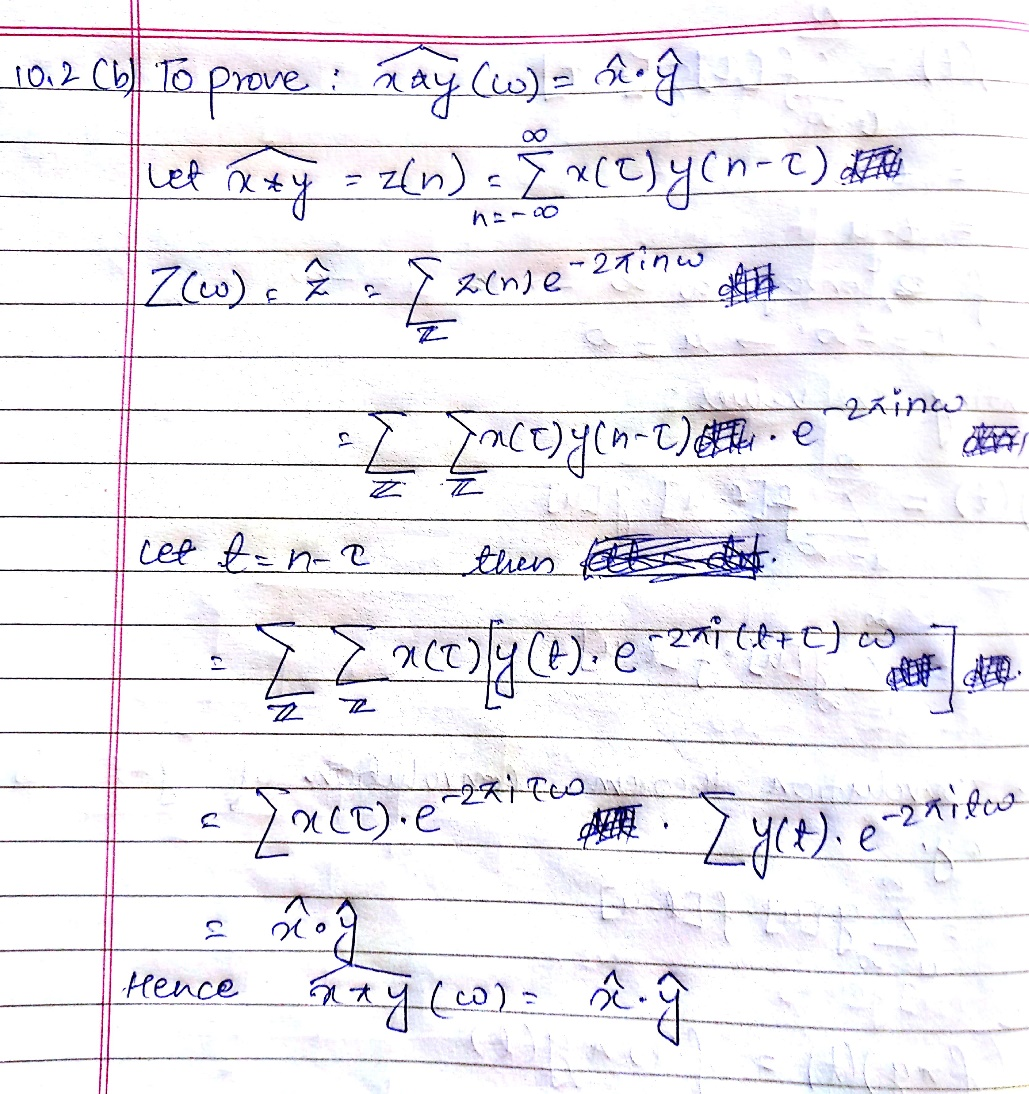 10.2 (b) To prove : \widehat{x*y} (ω) = x̂·ŷ
Let \widehat{x*y} = z(n) = ∑_{n=-∞}^{∞} x(τ) y(n-τ)
Z(ω) = ẑ = ∑_ℤ z(n) e^{-2πinω}
= ∑_ℤ ∑_ℤ x(τ) y(n-τ) · e^{-2πinω}
Let t = n-τ then
= ∑_ℤ ∑_ℤ x(τ) [y(t). e^{-2πi(t+τ)ω}]
= ∑ x(τ). e^{-2πiτω} . ∑ y(t). e^{-2πitω}
= x̂·ŷ
Hence \widehat{x*y} (ω) = x̂·ŷ